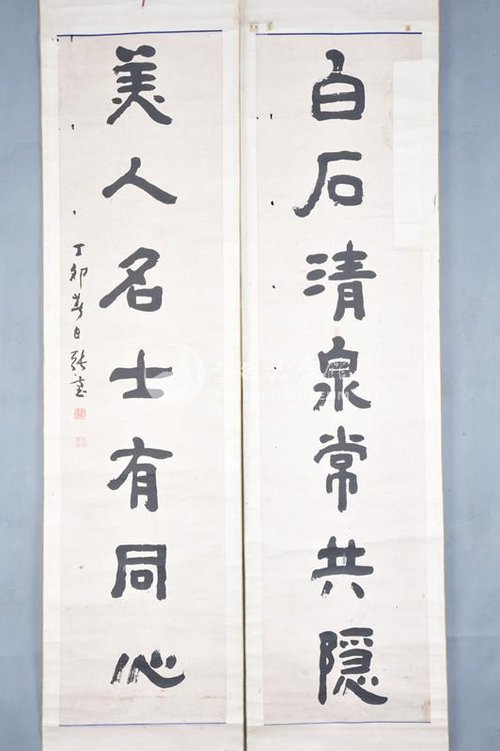 白石清泉常共隱
美人名士有同心
丁卯春日張寔